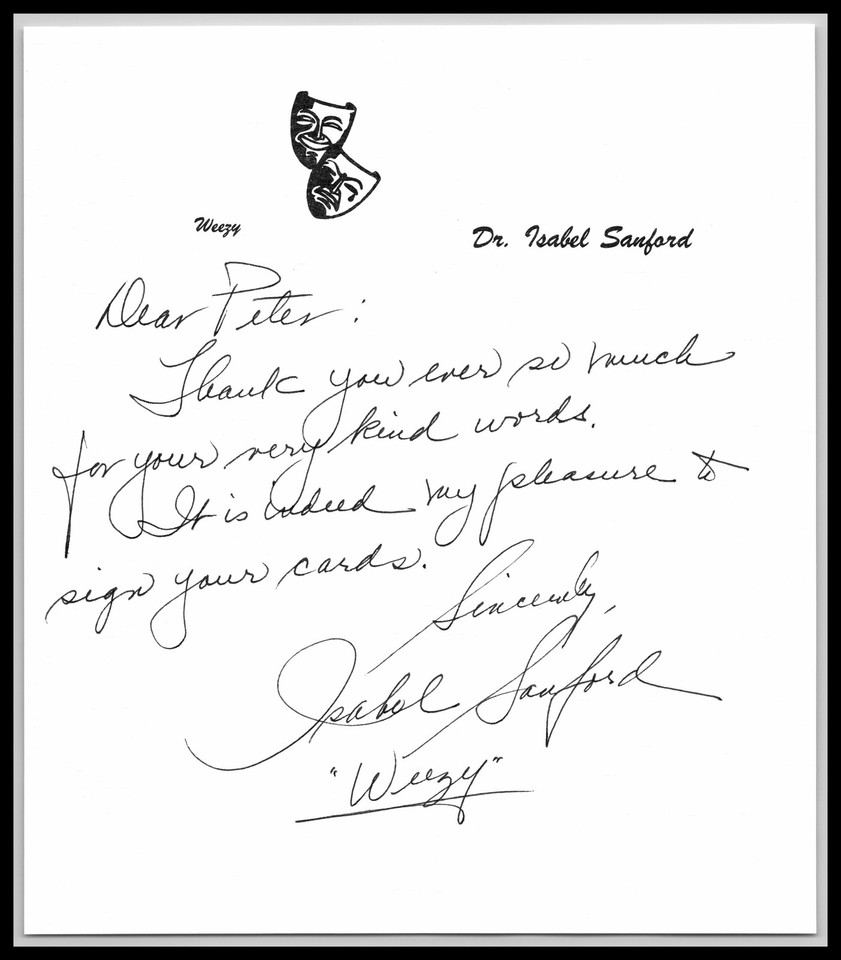 Weezy
Dr. Isabel Sanford
Dear Peter:
Thank you ever so much
for your very kind words.
It is indeed my pleasure to
sign your cards.
Sincerely,
Isabel Sanford
"Weezy"